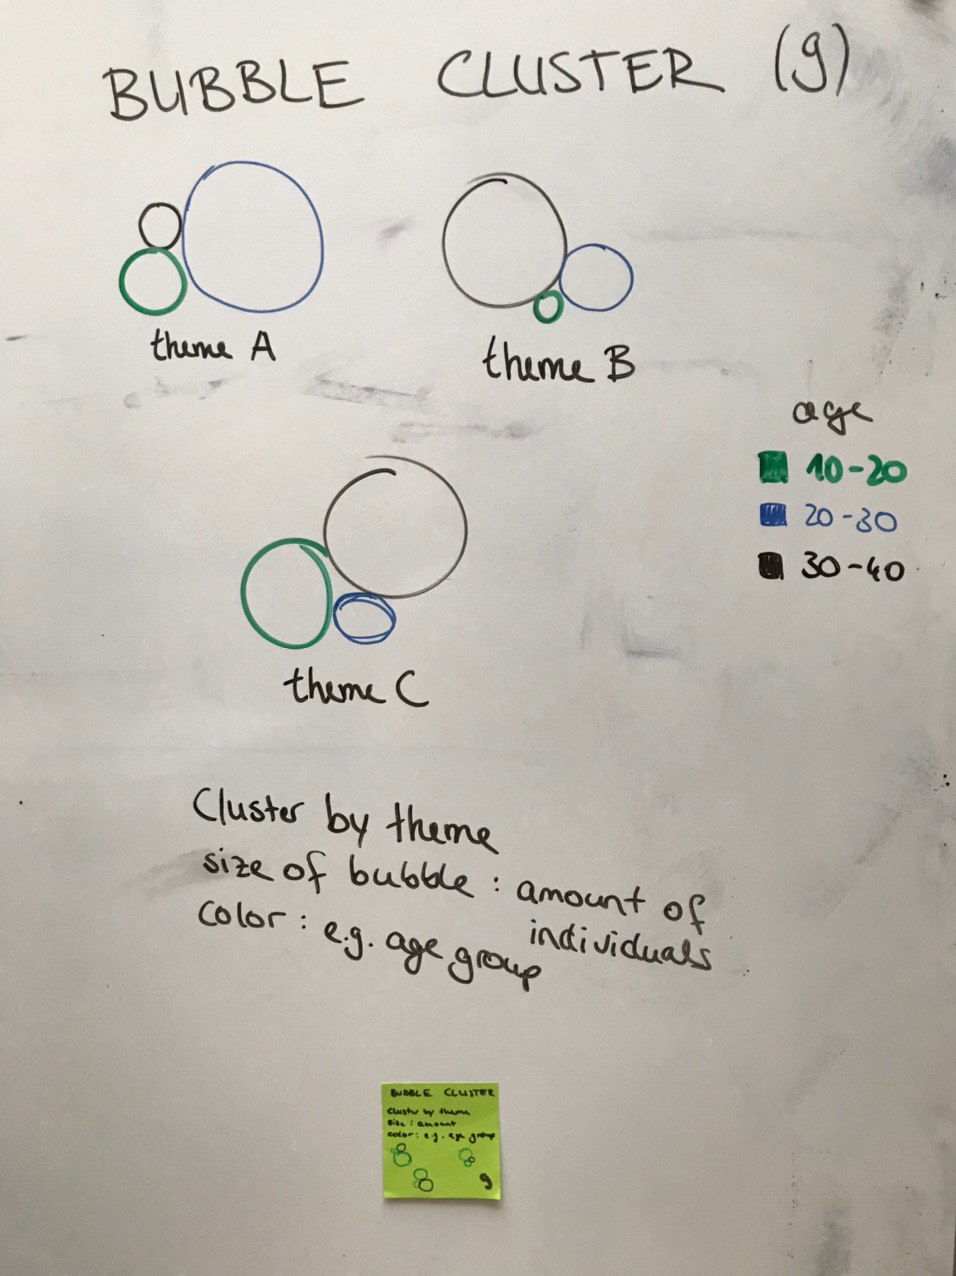 BUBBLE CLUSTER (9)
theme A
theme B
theme C
age
10-20
20-30
30-40
Cluster by theme
size of bubble : amount of
individuals
color : e.g. age group
BUBBLE CLUSTER
Cluster by theme
size : amount
color : e.g. age group
9